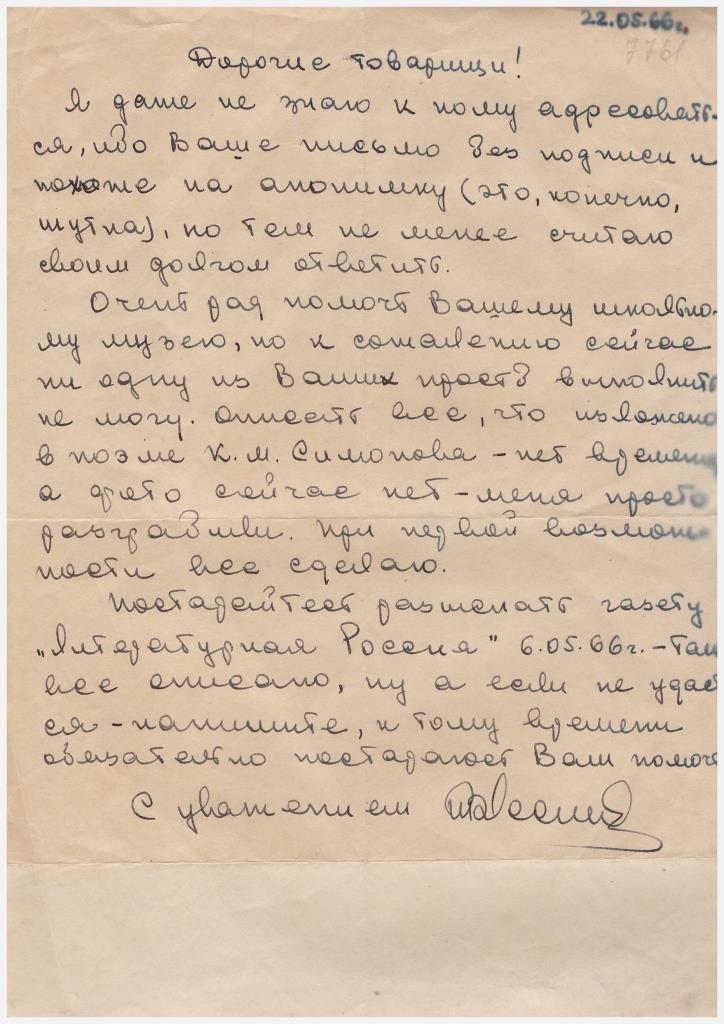 22.05.66г.
7761
Дорогие товарищи!
Я даже не знаю к кому адресовать-
ся, ибо Ваше письмо без подписи и
похоже на анонимку (это, конечно,
шутка), но тем не менее считаю
своим долгом ответить.
Очень рад помочь Вашему школьно-
му музею, но к сожалению сейчас
ни одну из Ваших просьб выполнить
не могу. Описать все, что изложено
в поэме К.М. Симонова - нет времени
а фото сейчас нет - меня просто
разграбили. При первой возмож-
ности все сделаю.
Постарайтесь разыскать газету
"Литературная Россия" 6.05.66г. - там
все описано, ну а если не удаст
ся - напишите, к тому времени
обязательно постараюсь Вам помочь
С уважением